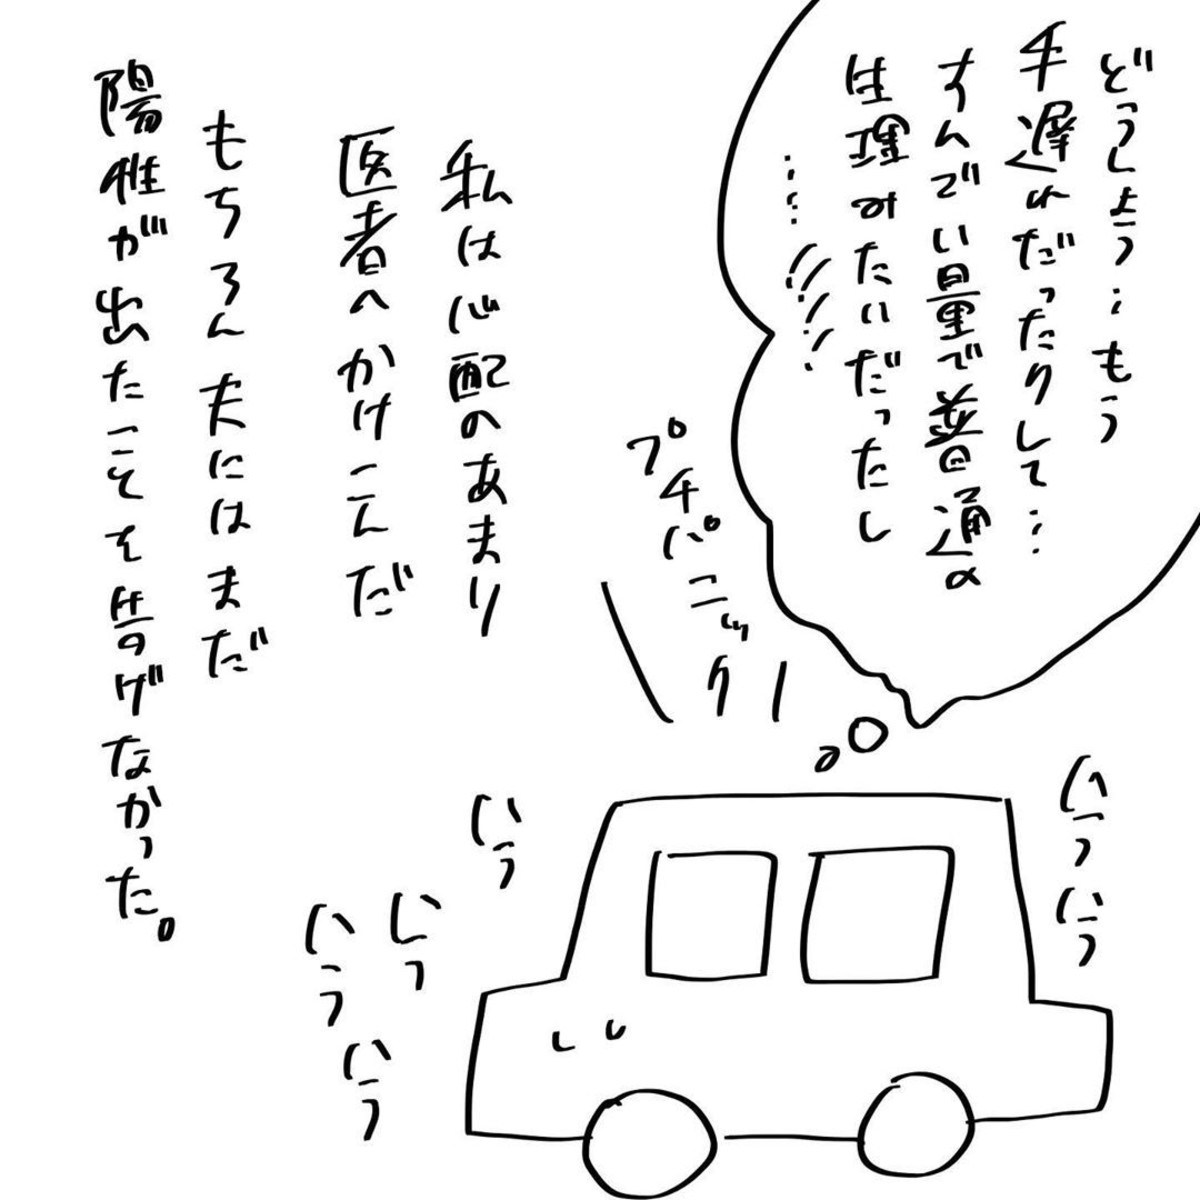 どうしよう…もう
手遅れだったりして…
すんでい量で普通の
生理みたいだったし
……!!!!
プチパニック
私は心配のあまり
医者へかけこんだ
もちろん夫にはまだ
陽性が出たことを告げなかった。
ハラ
ハラ
ハラ
ハラ
ハラ
ハラ